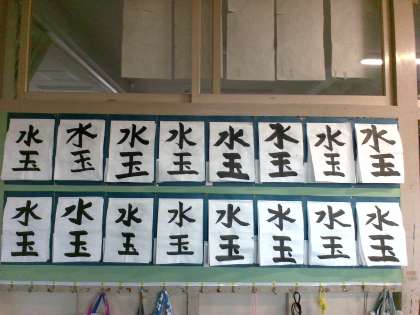 水玉 水玉 水玉 水玉 水玉 水玉 水玉 水玉
水玉 水玉 水玉 水玉 水玉 水玉 水玉 水玉